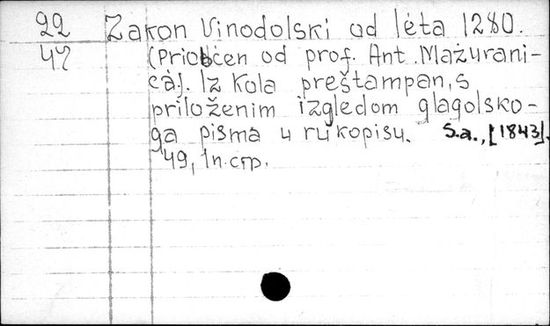 22 Zakon Vinodolski od lěta 1280.
47 (Priobćen od prof. Ant. Mažurani-
ća). Iz Kola preštampan, s
priloženim izgledom glagolsko-
ga pisma u rukopisu. S.a., [1843].
49, 1n.стр.